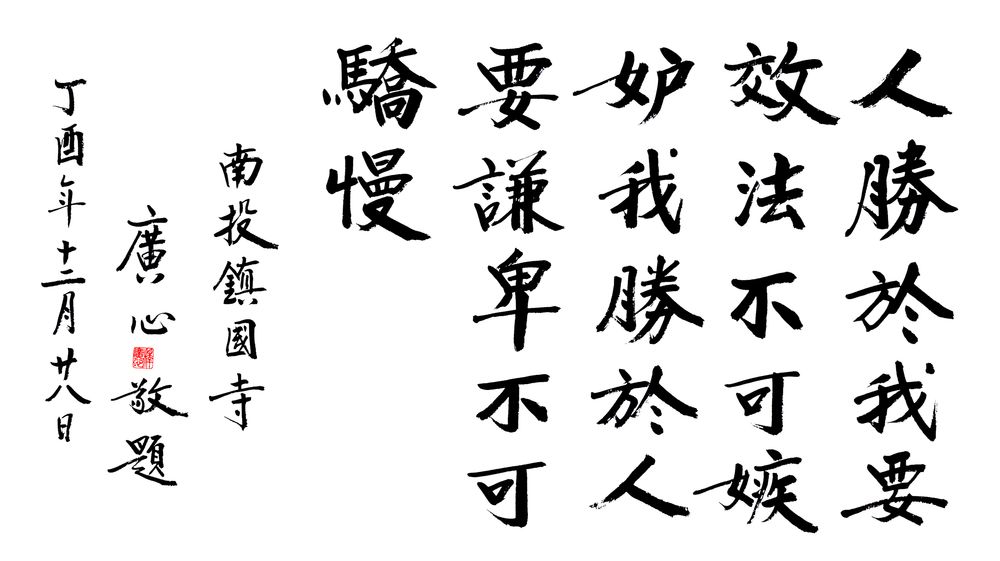 人勝於我要
效法不可嫉
妒我勝於人
要謙卑不可
驕慢
南投鎮國寺
廣心敬題
丁酉年十二月廿八日